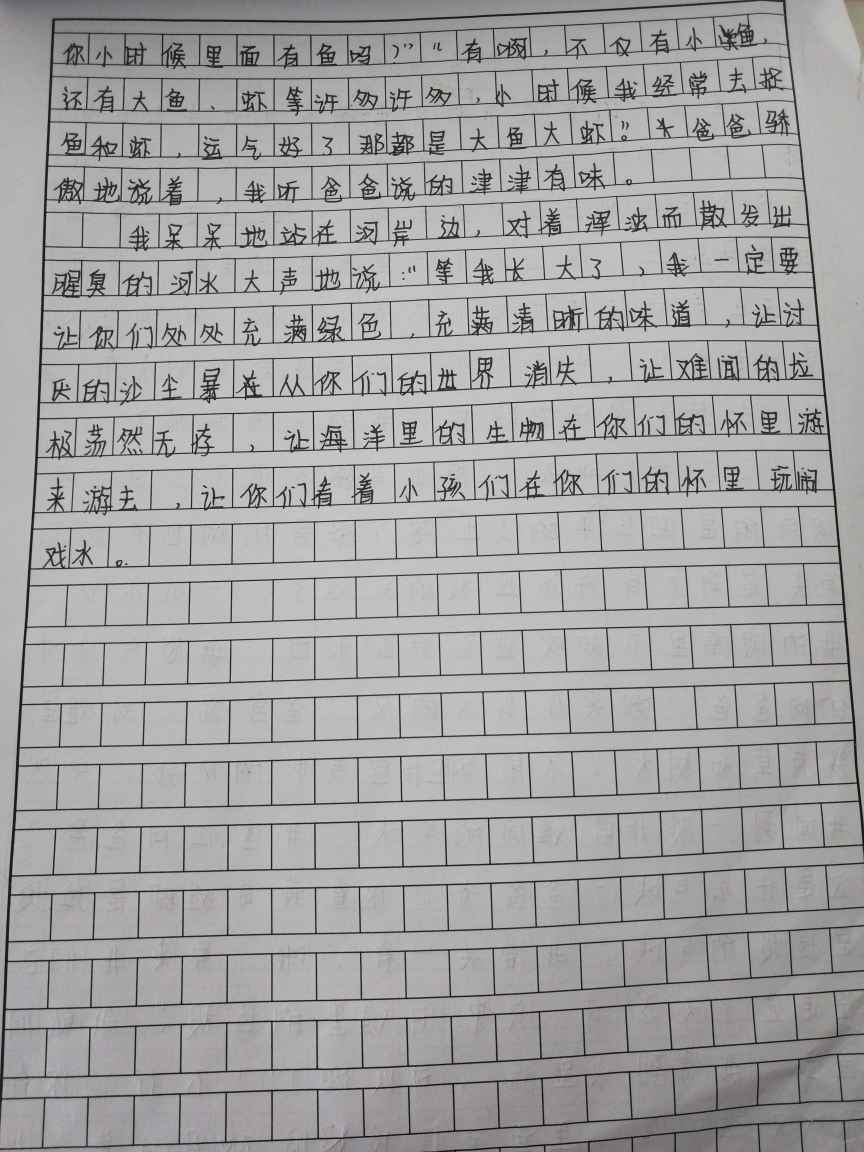 你小时候里面有鱼吗？”“有啊，不仅有小鱼，
还有大鱼、虾等许多许多，小时候我经常去捉
鱼和虾，运气好了那都是大鱼大虾。”爸爸骄
傲地说着，我听爸爸说的津津有味。
我呆呆地站在河岸边，对着浑浊而散发出
腥臭的河水大声地说：“等我长大了，我一定要
让你们处处充满绿色，充满清晰的味道，让讨
厌的沙尘暴在从你们的世界消失，让难闻的垃
极荡然无存，让海洋里的生物在你们的怀里游
来游去，让你们看着小孩们在你们的怀里玩闹
戏水。